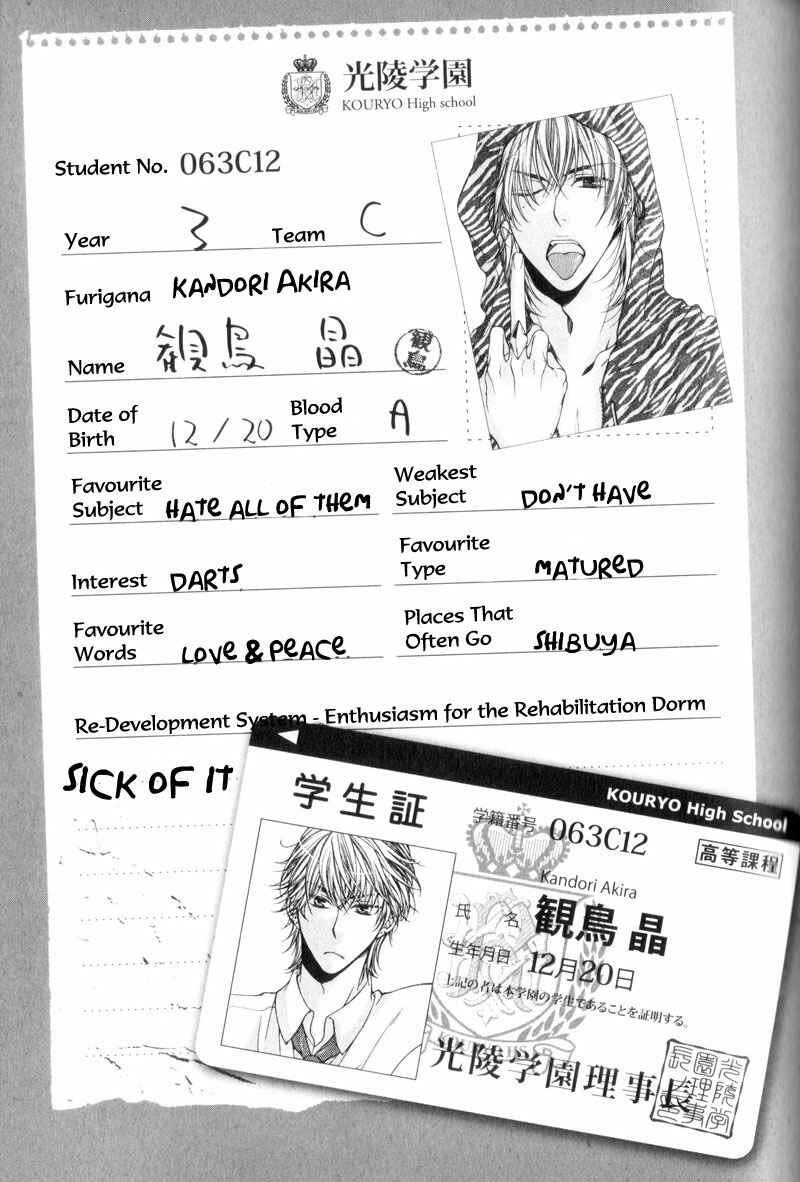 光陵学園
KOURYO High school
Student No. 063C12
Year 3 Team C
Furigana KANDORI AKIRA
Name 観鳥 晶 観鳥
Date of Birth 12/20 Blood Type A
Favourite Subject HATE ALL OF THEM
Weakest Subject DON'T HAVE
Interest DARTS
Favourite Type MATURED
Favourite Words LOVE & PEACE
Places That Often Go SHIBUYA
Re-Development System - Enthusiasm for the Rehabilitation Dorm
SICK OF IT
KOURYO High School
学生証
学籍番号 063C12
高等課程
Kandori Akira
氏名 観鳥 晶
生年月日 12月20日
上記の者は本学園の学生であることを証明する。
光陵学園理事長